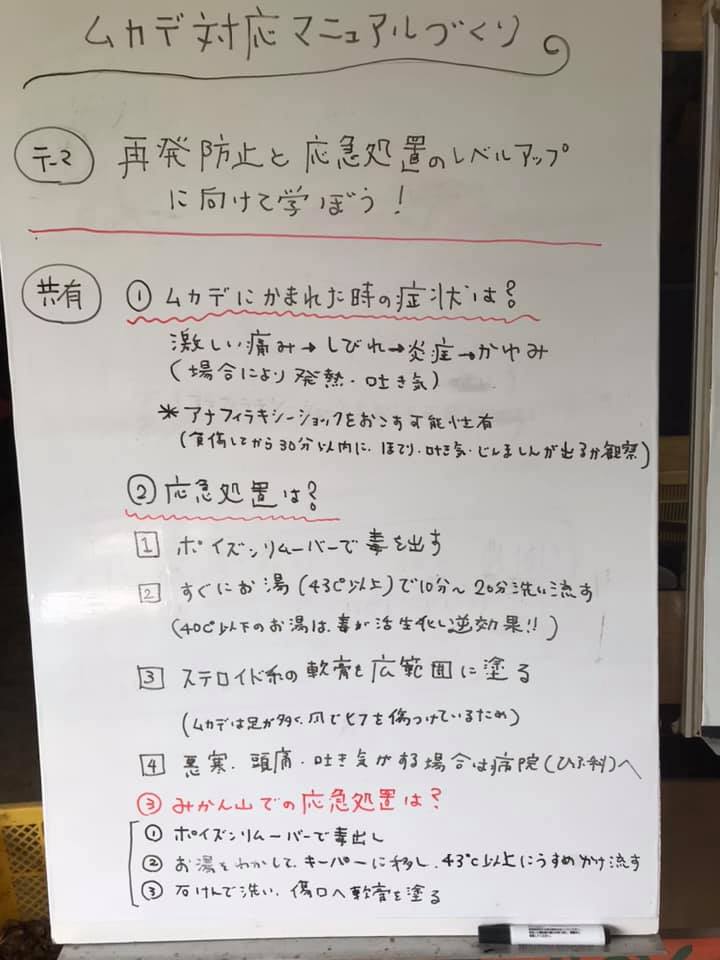 ムカデ対応マニュアルづくり
テーマ 再発防止と応急処置のレベルアップ
に向けて学ぼう!
共有 ①ムカデにかまれた時の症状は?
激しい痛み→しびれ→炎症→かゆみ
(場合により発熱・吐き気)
*アナフィラキシーショックをおこす可能性有
(負傷してから30分以内に、ほてり・吐き気・じんましんが出るか観察)
②応急処置は?
1 ポイズンリムーバーで毒を出す
2 すぐにお湯(43℃以上)で10分~20分洗い流す
(40℃以下のお湯は、毒が活生化し逆効果!!)
3 ステロイド系の軟膏を広範囲に塗る
(ムカデは足が多く、爪でヒフを傷つけているため)
4 悪寒・頭痛・吐き気がする場合は病院(ひふ科)へ
③みかん山での応急処置は?
①ポイズンリムーバーで毒出し
②お湯をわかして、キーパーに移し、43℃以上にうすめかけ流す
③石けんで洗い、傷口へ軟膏を塗る